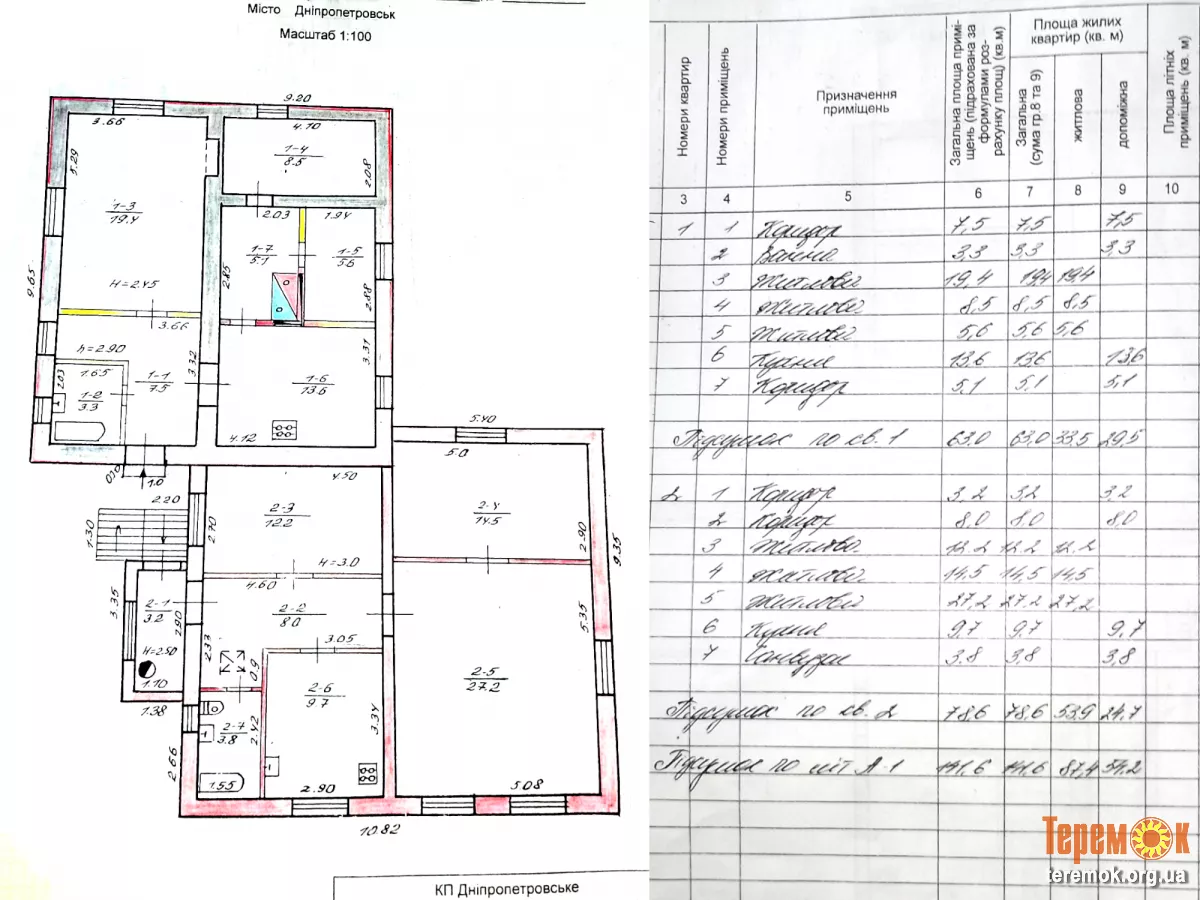 Місто Дніпропетровськ
Масштаб 1:100
9.20
3.66
4.10
1-4
8.5
5.29
2.08
1-3
19.4
2.03
1.94
1-7
5.1
1-5
5.6
9.65
2.85
2.88
H=2.45
3.66
h=2.90
3.32
3.31
2.03
1.65
1-1
7.5
1-6
13.6
1-2
3.3
4.12
5.40
5.0
1.0
4.50
2.20
2-3
12.2
2-4
14.5
1.30
2.70
2.90
9.35
H=3.0
4.60
3.35
2-1
3.2
2.90
2-2
8.0
5.35
2.33
3.05
H=2.50
0.9
2-5
27.2
1.10
2-6
9.7
1.38
2-7
3.8
2.42
3.34
2.66
1.55
2.90
5.08
10.82
КП Дніпропетровське
Номери квартир
Номери приміщень
Призначення приміщень
Загальна площа приміщень (підрахована за формулами розрахунку площ) (кв.м)
Площа жилих квартир (кв. м)
Загальна (сума гр.8 та 9)
житлова
допоміжна
Площа літніх приміщень (кв. м)
3 4 5 6 7 8 9 10
1 1 Коридор 7,5 7,5 7,5
2 Ванна 3,3 3,3 3,3
3 Житлової 19,4 19,4 19,4
4 Житлової 8,5 8,5 8,5
5 Житлової 5,6 5,6 5,6
6 Кухня 13,6 13,6 13,6
7 Коридор 5,1 5,1 5,1
Підсумок по кв. 1 63.0 63.0 33,5 29,5
2 1 Коридор 3,2 3,2 3,2
2 Коридор 8,0 8,0 8,0
3 Житлово. 12.2 12.2 12.2
4 Житлової 14.5 14,5 14,5
5 Житлової 27,2 27,2 27,2
6 Кухня 9,7 9,7 9,7
7 Санвузол 3.8 3,8 3,8
Підсумок по кв. 2 78,6 78,6 53,9 24,7
Підсумок по літ А-1 141,6 141,6 87,4 54.2
Теремок
teremok.org.ua